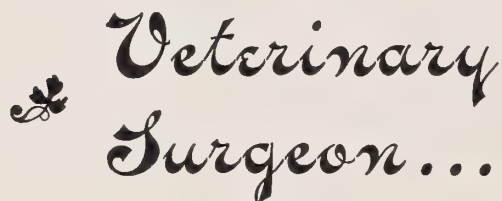 Veterinary
Surgeon...